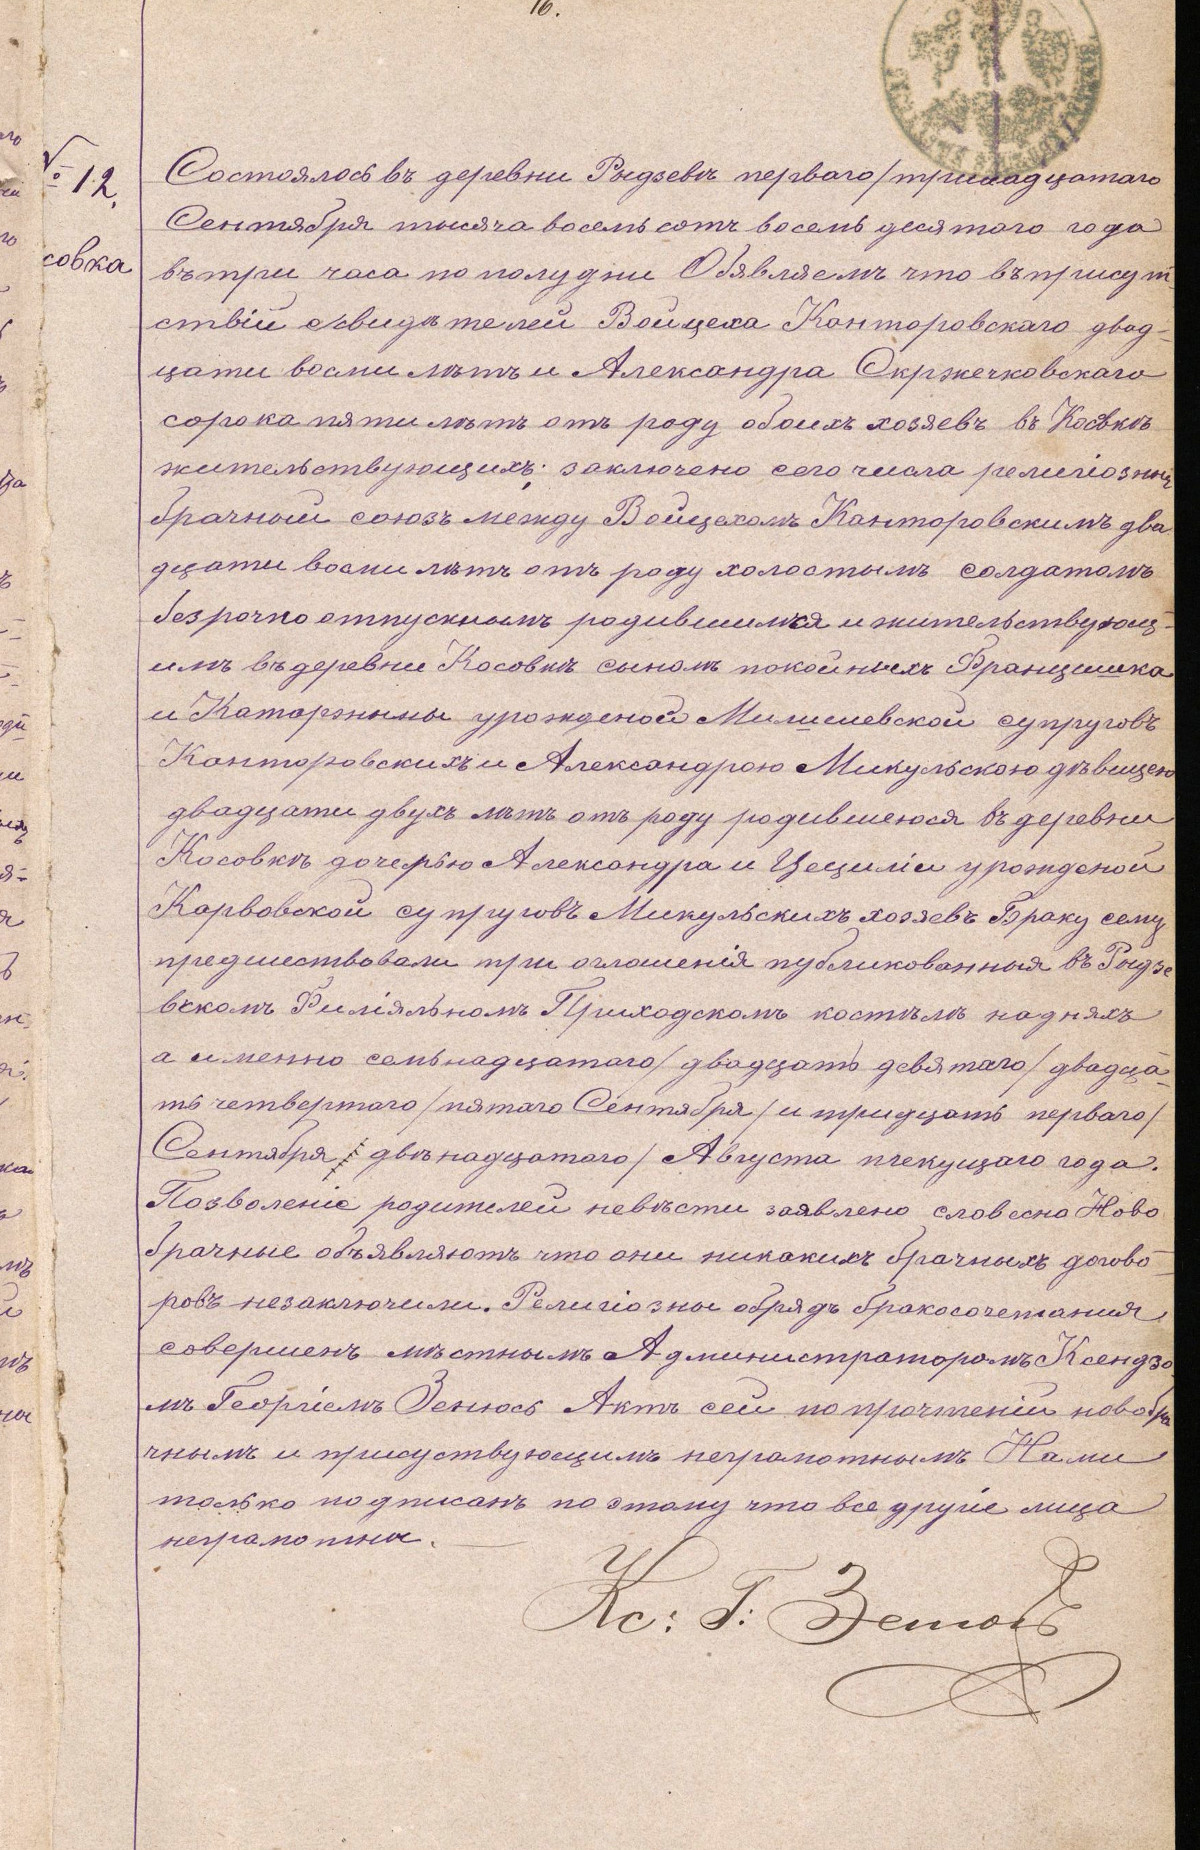 16.
№ 12.
совка
Состоялось въ деревни Рыдзевѣ перваго/тринадцатаго
Сентября тысяча восемь сотъ восемь десятого года
въ три часа по полудни Обявляемъ что въ присут
ствіи свидѣтелей Войцеха Канторовскаго двад-
цати восми лѣтъ и Александра Окржечковскаго
сорока пяти лѣтъ отъ роду обоихъ хозяевъ въ Косовкѣ
жительствующихъ; заключено сего числа религіозный
брачный союзъ между Войцехомъ Канторовскимъ два
дцати восми лѣтъ отъ роду холостымъ солдатомъ
безрочно отпускнымъ родившимся и жительствующ-
имъ въ деревни Косовкѣ сыномъ покойныхъ Францишка
и Катаржины урожденой супруговъ
Канторовскихъ и Александрою Микульскою дѣвицею
двадцати двухъ лѣтъ отъ роду родившеюся въ деревни
Косовкѣ дочерью Александра и Цециліи урожденой
Карвовской супруговъ Микульскихъ хозяевъ Браку сему
предшествовали три оглашенія публикованныя въ Рыдзе
вскомъ Филіяльномъ Приходскомъ костелѣ на дняхъ
а именно семьнадцатаго/двадцать девятаго/двадца-
ть четвертаго/пятаго Сентября/и тридцать перваго/
Сентября двѣнадцатого/Августа текущаго года.
Позволеніе родителей невѣсти заявлено словесно Ново
брачные объявляютъ что они никакихъ брачныхъ догово-
ровъ незаключили. Религіозны обрядъ бракосочетания
совершенъ мѣстнымъ Администраторомъ Ксендзо
мъ Георгіемъ Зенюсь Актъ сей по прочтеніи новобра
чнымъ и присуствующимъ неграмотнымъ Нами
только подписанъ поэтому что все другіе лица
неграмотны.
Кс: Г: Зенюсь